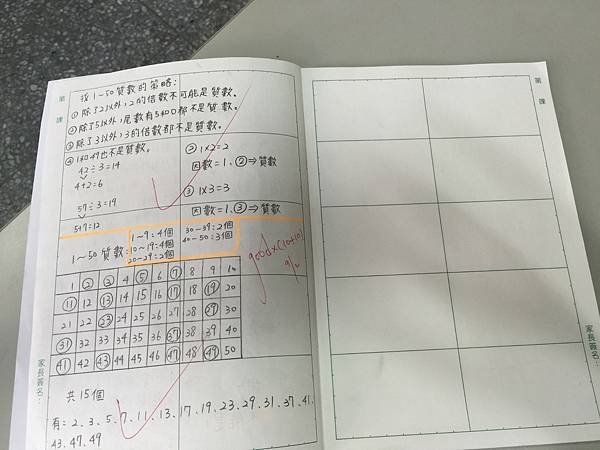 第 課
找1~50質數的策略:
① 除了2以外,2的倍數不可能是質數。
② 除了5以外,尾數有5和0都不是質數。
③ 除了3以外,3的倍數都不是質數。
④ 1和49也不是質數。
42÷3=14
4+2=6
57÷3=19
5+7=12
② 1×2=2
因數=1、②⇒質數
③ 1×3=3
因數=1、③⇒質數
1~50質數:
1~9:4個
10~19:4個
20~29:2個
30~39:2個
40~50:3個
1 ② ③ 4 ⑤ 6 ⑦ 8 9 10
⑪ 12 ⑬ 14 15 16 17 18 ⑲ 20
21 22 ㉓ 24 25 26 27 28 ㉙ 30
㉛ 32 33 34 35 36 ㊲ 38 39 40
㊶ 42 ㊸ 44 45 46 ㊼ 48 49 50
good×(10+10)
9/2
共15個
有:2、3、5、7、11、13、17、19、23、29、31、37、41、
43、47、49
家長簽名:
第 課
家長簽名: